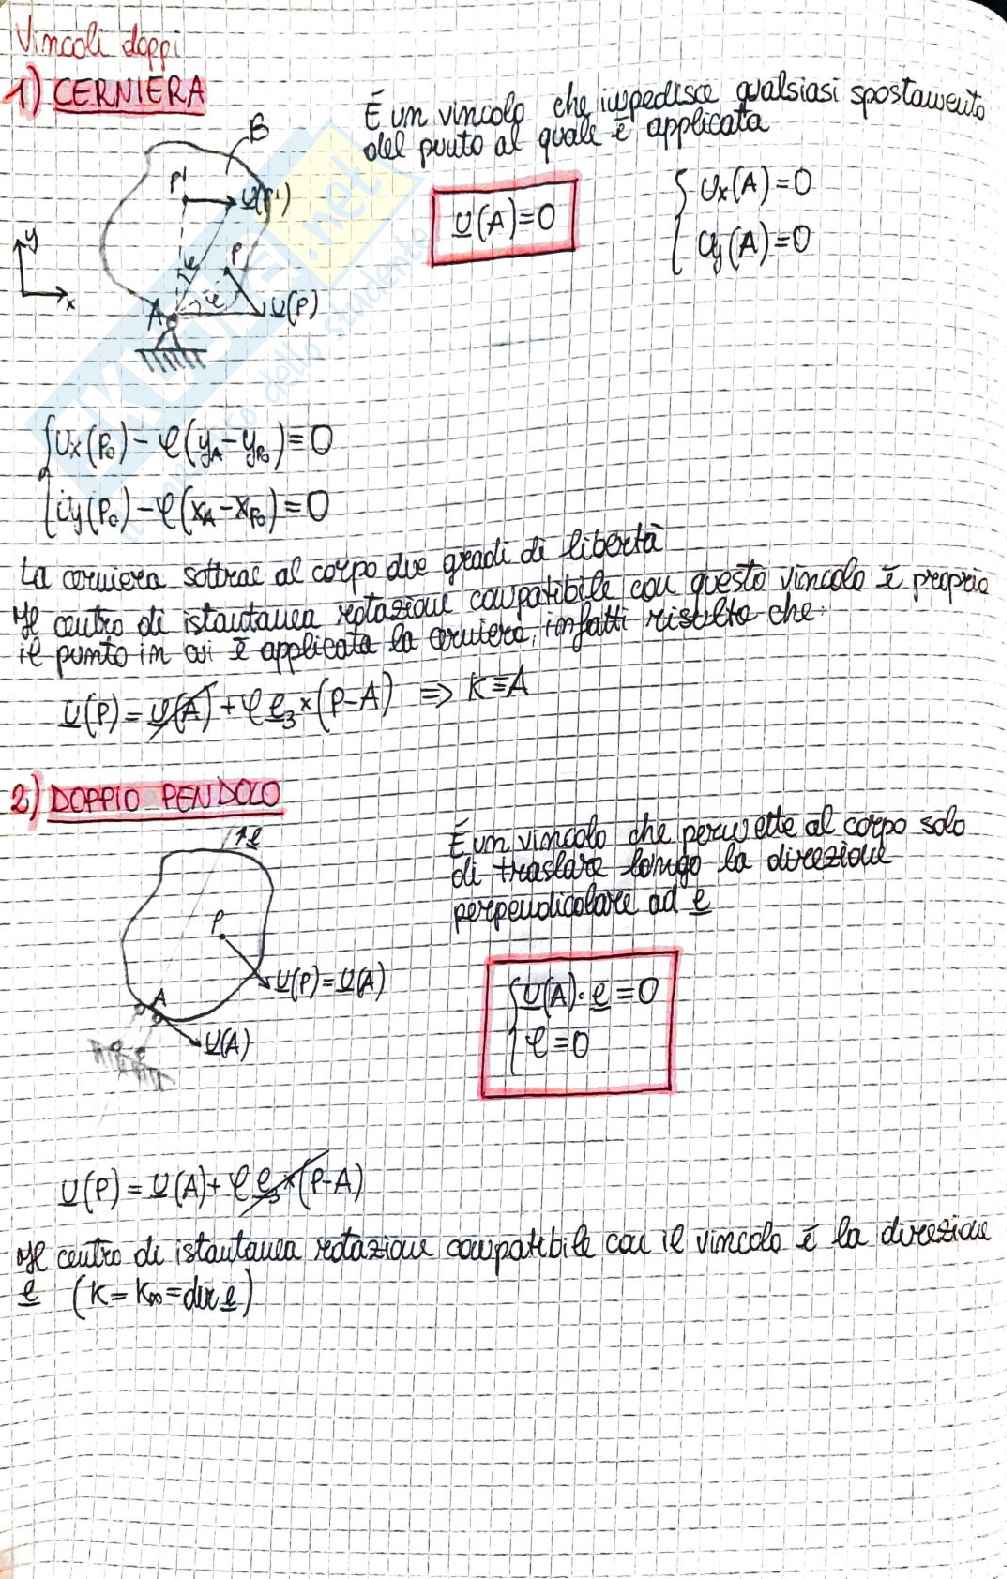 Vincoli doppi
1) CERNIERA
È un vincolo che impedisce qualsiasi spostamento
del punto al quale è applicata
B
P' U(P')
U(A)=0
{ Ux(A)=0
{ Uy(A)=0
y
x
φ
P
φ
A
U(P)
{ Ux(P₀) - φ(yA - yP₀) = 0
{ Uy(P₀) - φ(xA - xP₀) = 0
La cerniera sottrae al corpo due gradi di libertà
Il centro di istantanea rotazione compatibile con questo vincolo è proprio
il punto in cui è applicata la cerniera, infatti risulta che:
U(P) = U(A) + φ e₃ × (P-A) ⇒ K≡A
2) DOPPIO PENDOLO
e
È un vincolo che permette al corpo solo
di traslare lungo la direzione
perpendicolare ad e
P
U(P)=U(A)
A
U(A)
{ U(A)·e = 0
{ φ = 0
U(P) = U(A) + φ e₃ × (P-A)
Il centro di istantanea rotazione compatibile con il vincolo è la direzione
e (K = K∞ = dir e)